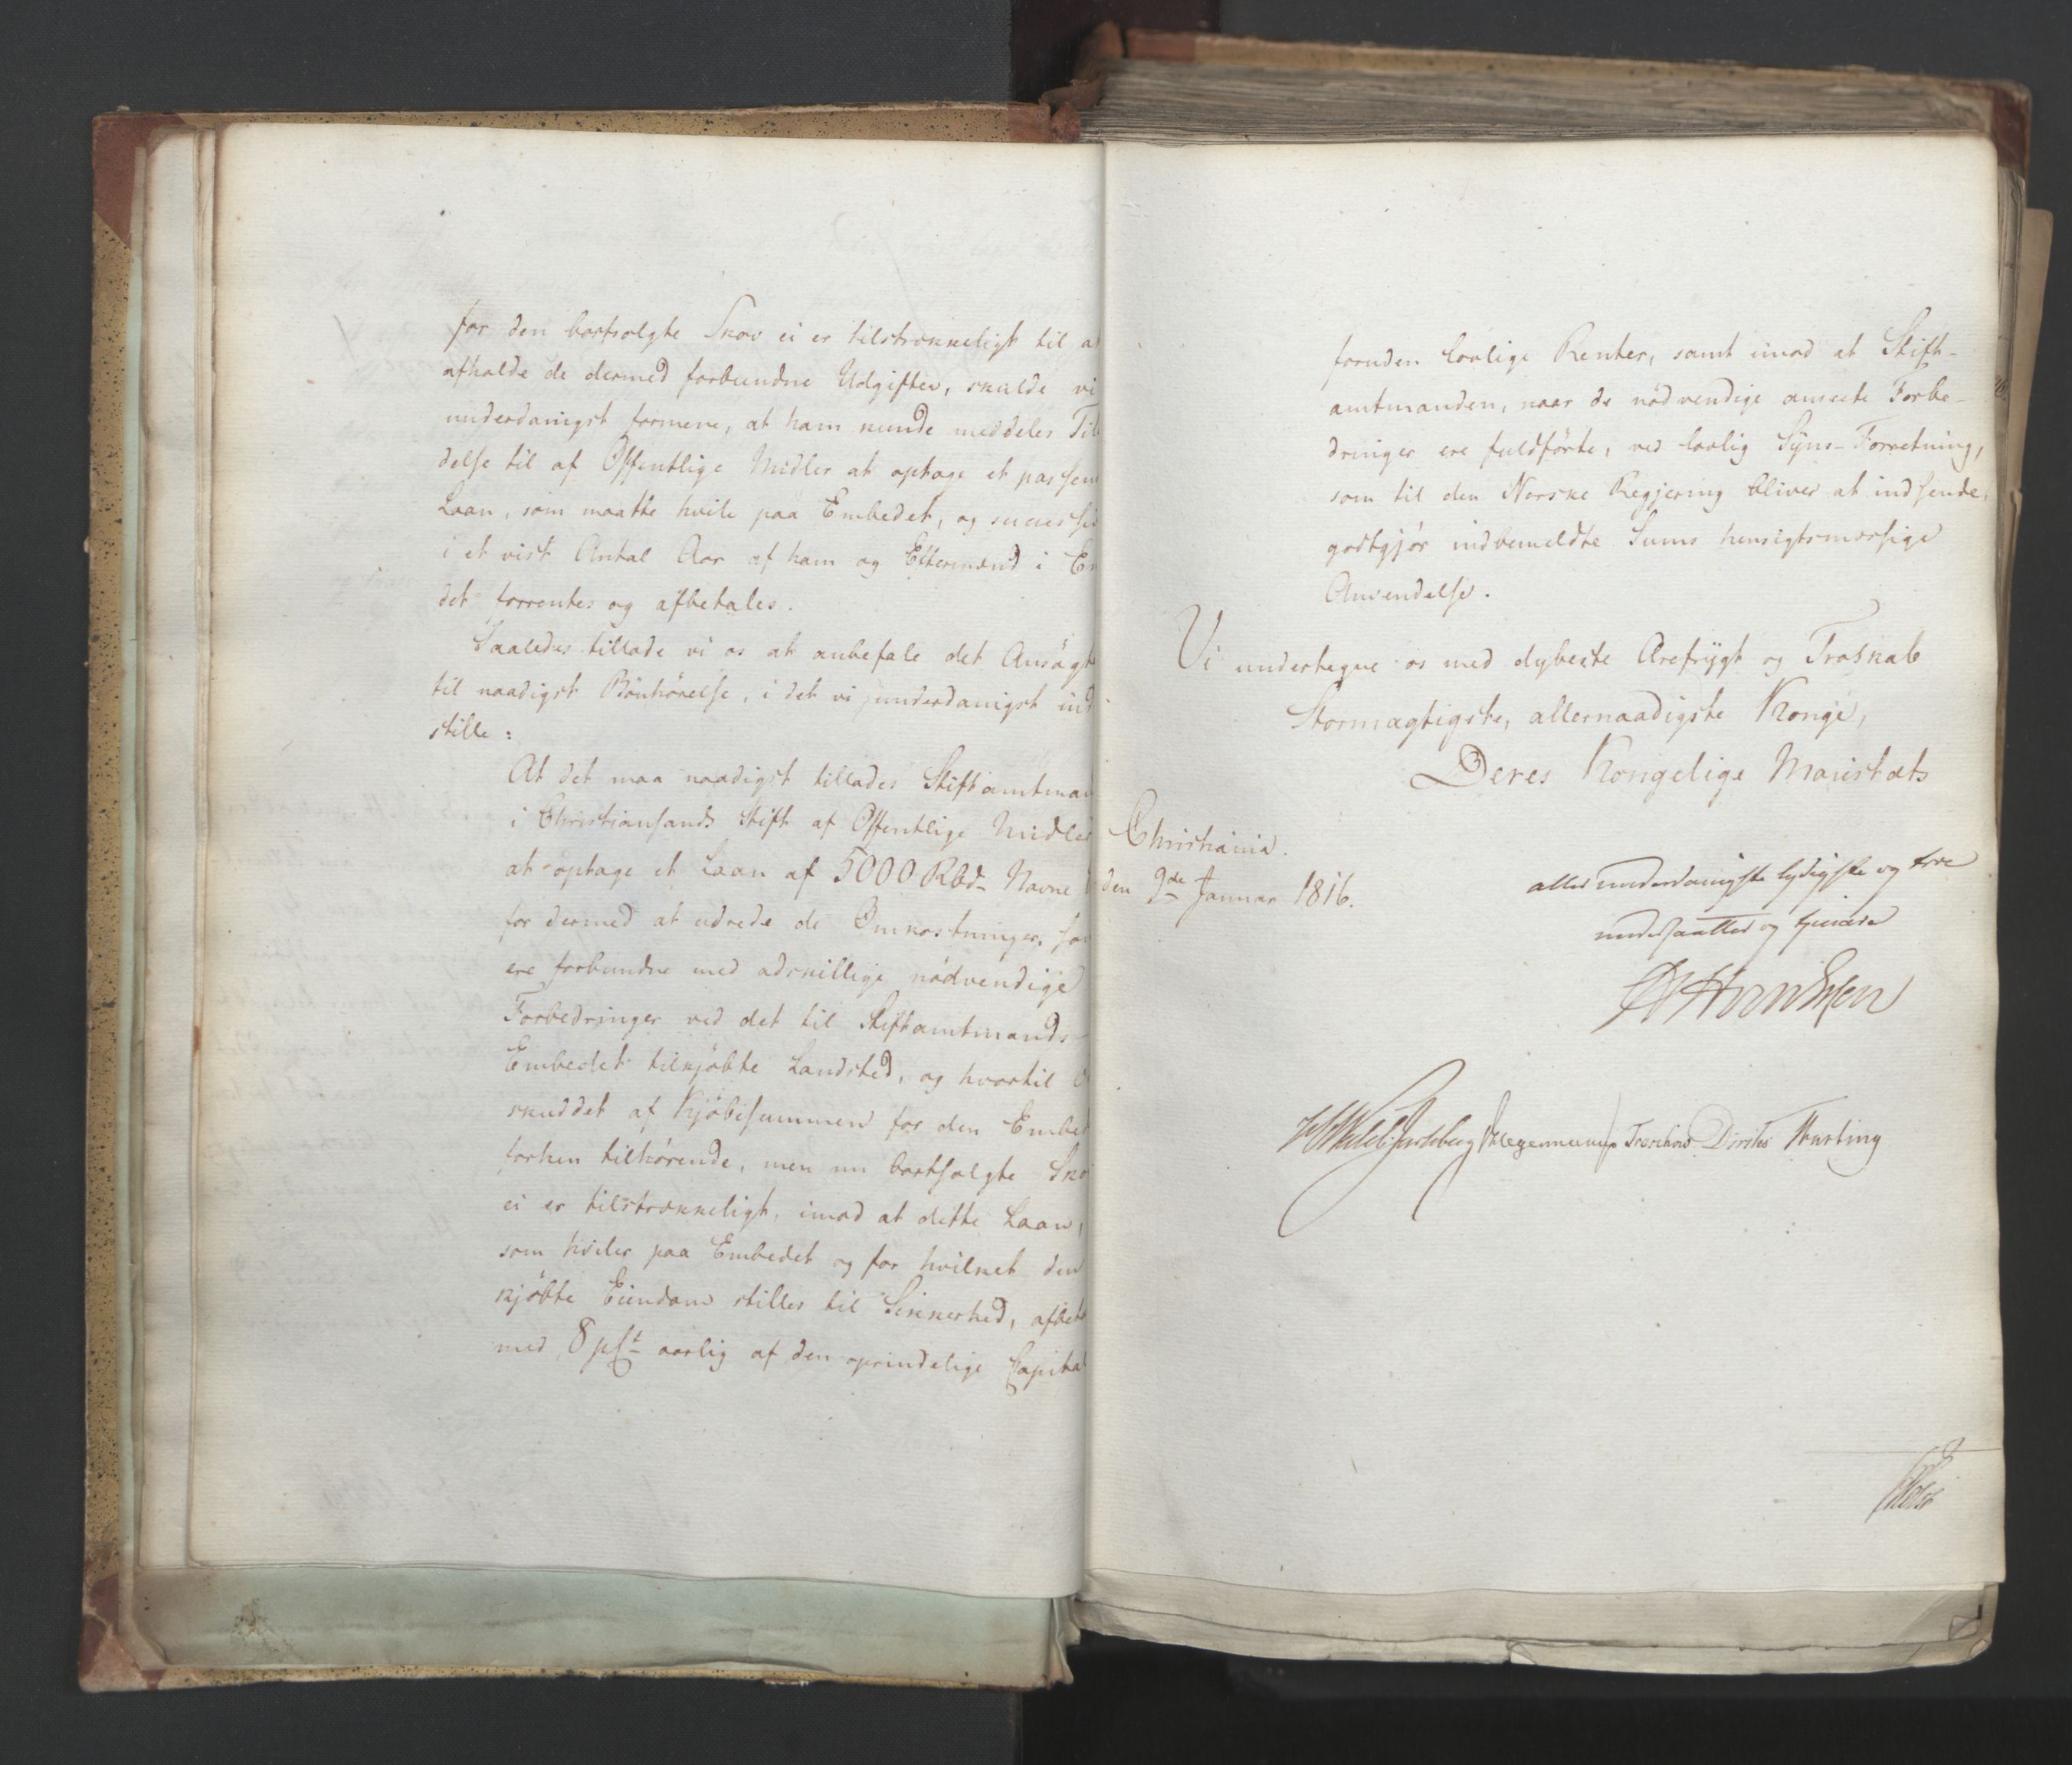 for den bortsolgte Skov ei er tilstrækkeligt til at
afholde de dermed forbundne Udgifter, skulde vi
underdanigst formene, at ham kunde meddeles Til
delse til af Offentlige Midler at optage et passen
Laan, som maatte hvile paa Embedet, og successiv
i et vist Antal Aar af ham og Eftermænd i Em
det forrentes og afbetales.
Saaledes tillade vi os at anbefale det Ansøgte
til naadigst Bønhørelse, i det vi underdanigst ind
stille:
At det maa naadigst tillades Stiftamtman
i Christiansands Stift af Offentlige Midler
at optage et Laan af 5000 Rbd. Navne
for dermed at udrede de Omkostninger, som
ere forbundne med adskillige nødvendige
Forbedringer ved det til Stiftamtmands-
Embedet tilkjøbte Landsted, og hvortil O
skuddet af Kjøbesummen for den Embed
forhen tilhørende, men nu bortsolgte Sko
ei er tilstrækkeligt, imod at dette Laan,
som hviler paa Embedet og for hvilket den
kjøbte Eiendom stilles til Sikkerhed, afbeta
med 8 pCt aarlig af den oprindelige Capital
foruden lovlige Renter, samt imod at Stift-
amtmanden, naar de nødvendige ansete Forbe-
dringer ere fuldførte, ved lovlig Syns-Forretning,
som til den Norske Regjering bliver at indsende,
godtgjør indbemeldte Sums hensigtsmæssige
Anvendelse.
Vi undertegne os med dybeste Ærefrygt og Troskab
Stormægtigste, allernaadigste Konge,
Deres Kongelige Majestæts
Christiania.
den 9de Januar 1816.
allerunderdanigste lydigste og troe
undersaatter og tjenere
Hornemann Treschow Diriks Motzfeldt